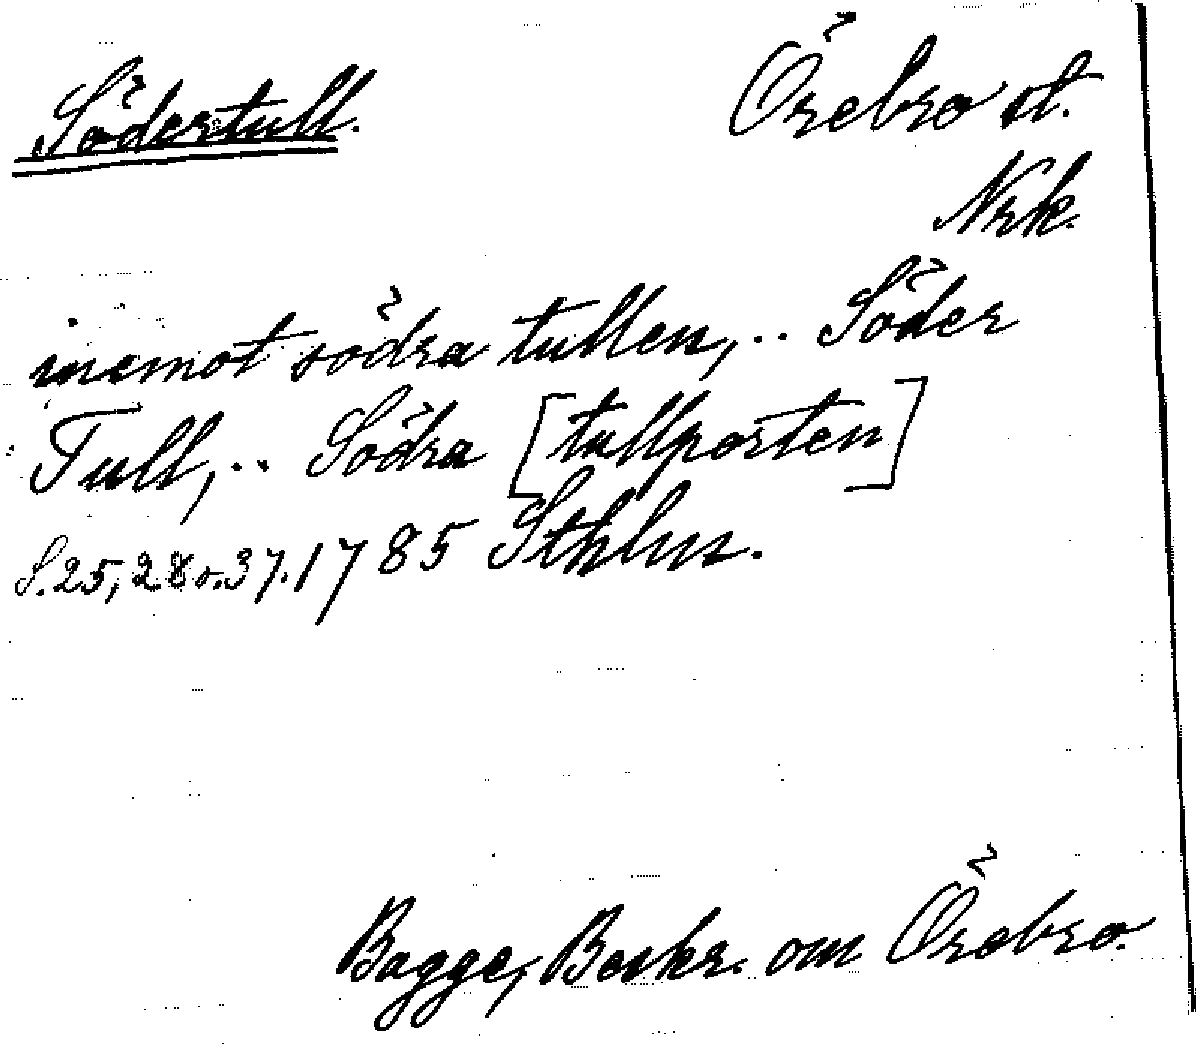 Södertull.
Örebro st.
Nrk.
inemot södra tullen, .. Söder
Tull, .. Södra [tullporten]
S. 25, 28 o. 37. 1785 Sthlm.
Bagge, Beskr. om Örebro.